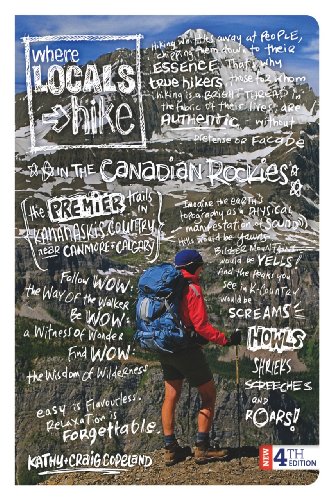 where
LOCALS
hike
IN THE CANADIAN ROCKIES
the PREMIER trails
IN
KANANASKIS COUNTRY
near CANMORE + CALGARY
Hiking whittles away at PEOPLE,
chipping them down to their
ESSENCE. That's why
true hikers — those for whom
hiking is a BRIGHT THREAD in
the fabric of their lives, are
AUTHENTIC — without
pretense or FACADE
Imagine the EARTH'S
topography as a PHYSICAL
manifestation of SOUND
Hills would be
MOUNTAINS
would be YELLS!
And the peaks you
see in K-Country
would be
SCREAMS
HOWLS
SHRIEKS
SCREECHES
AND
ROARS!
Follow WOW:
the Way of the Walker
Be WOW:
a Witness of Wonder
Find WOW:
the Wisdom of Wilderness
easy is flavourless.
Relaxation is
Forgettable.
KATHY + CRAIG COPELAND
NEW
4TH
EDITION